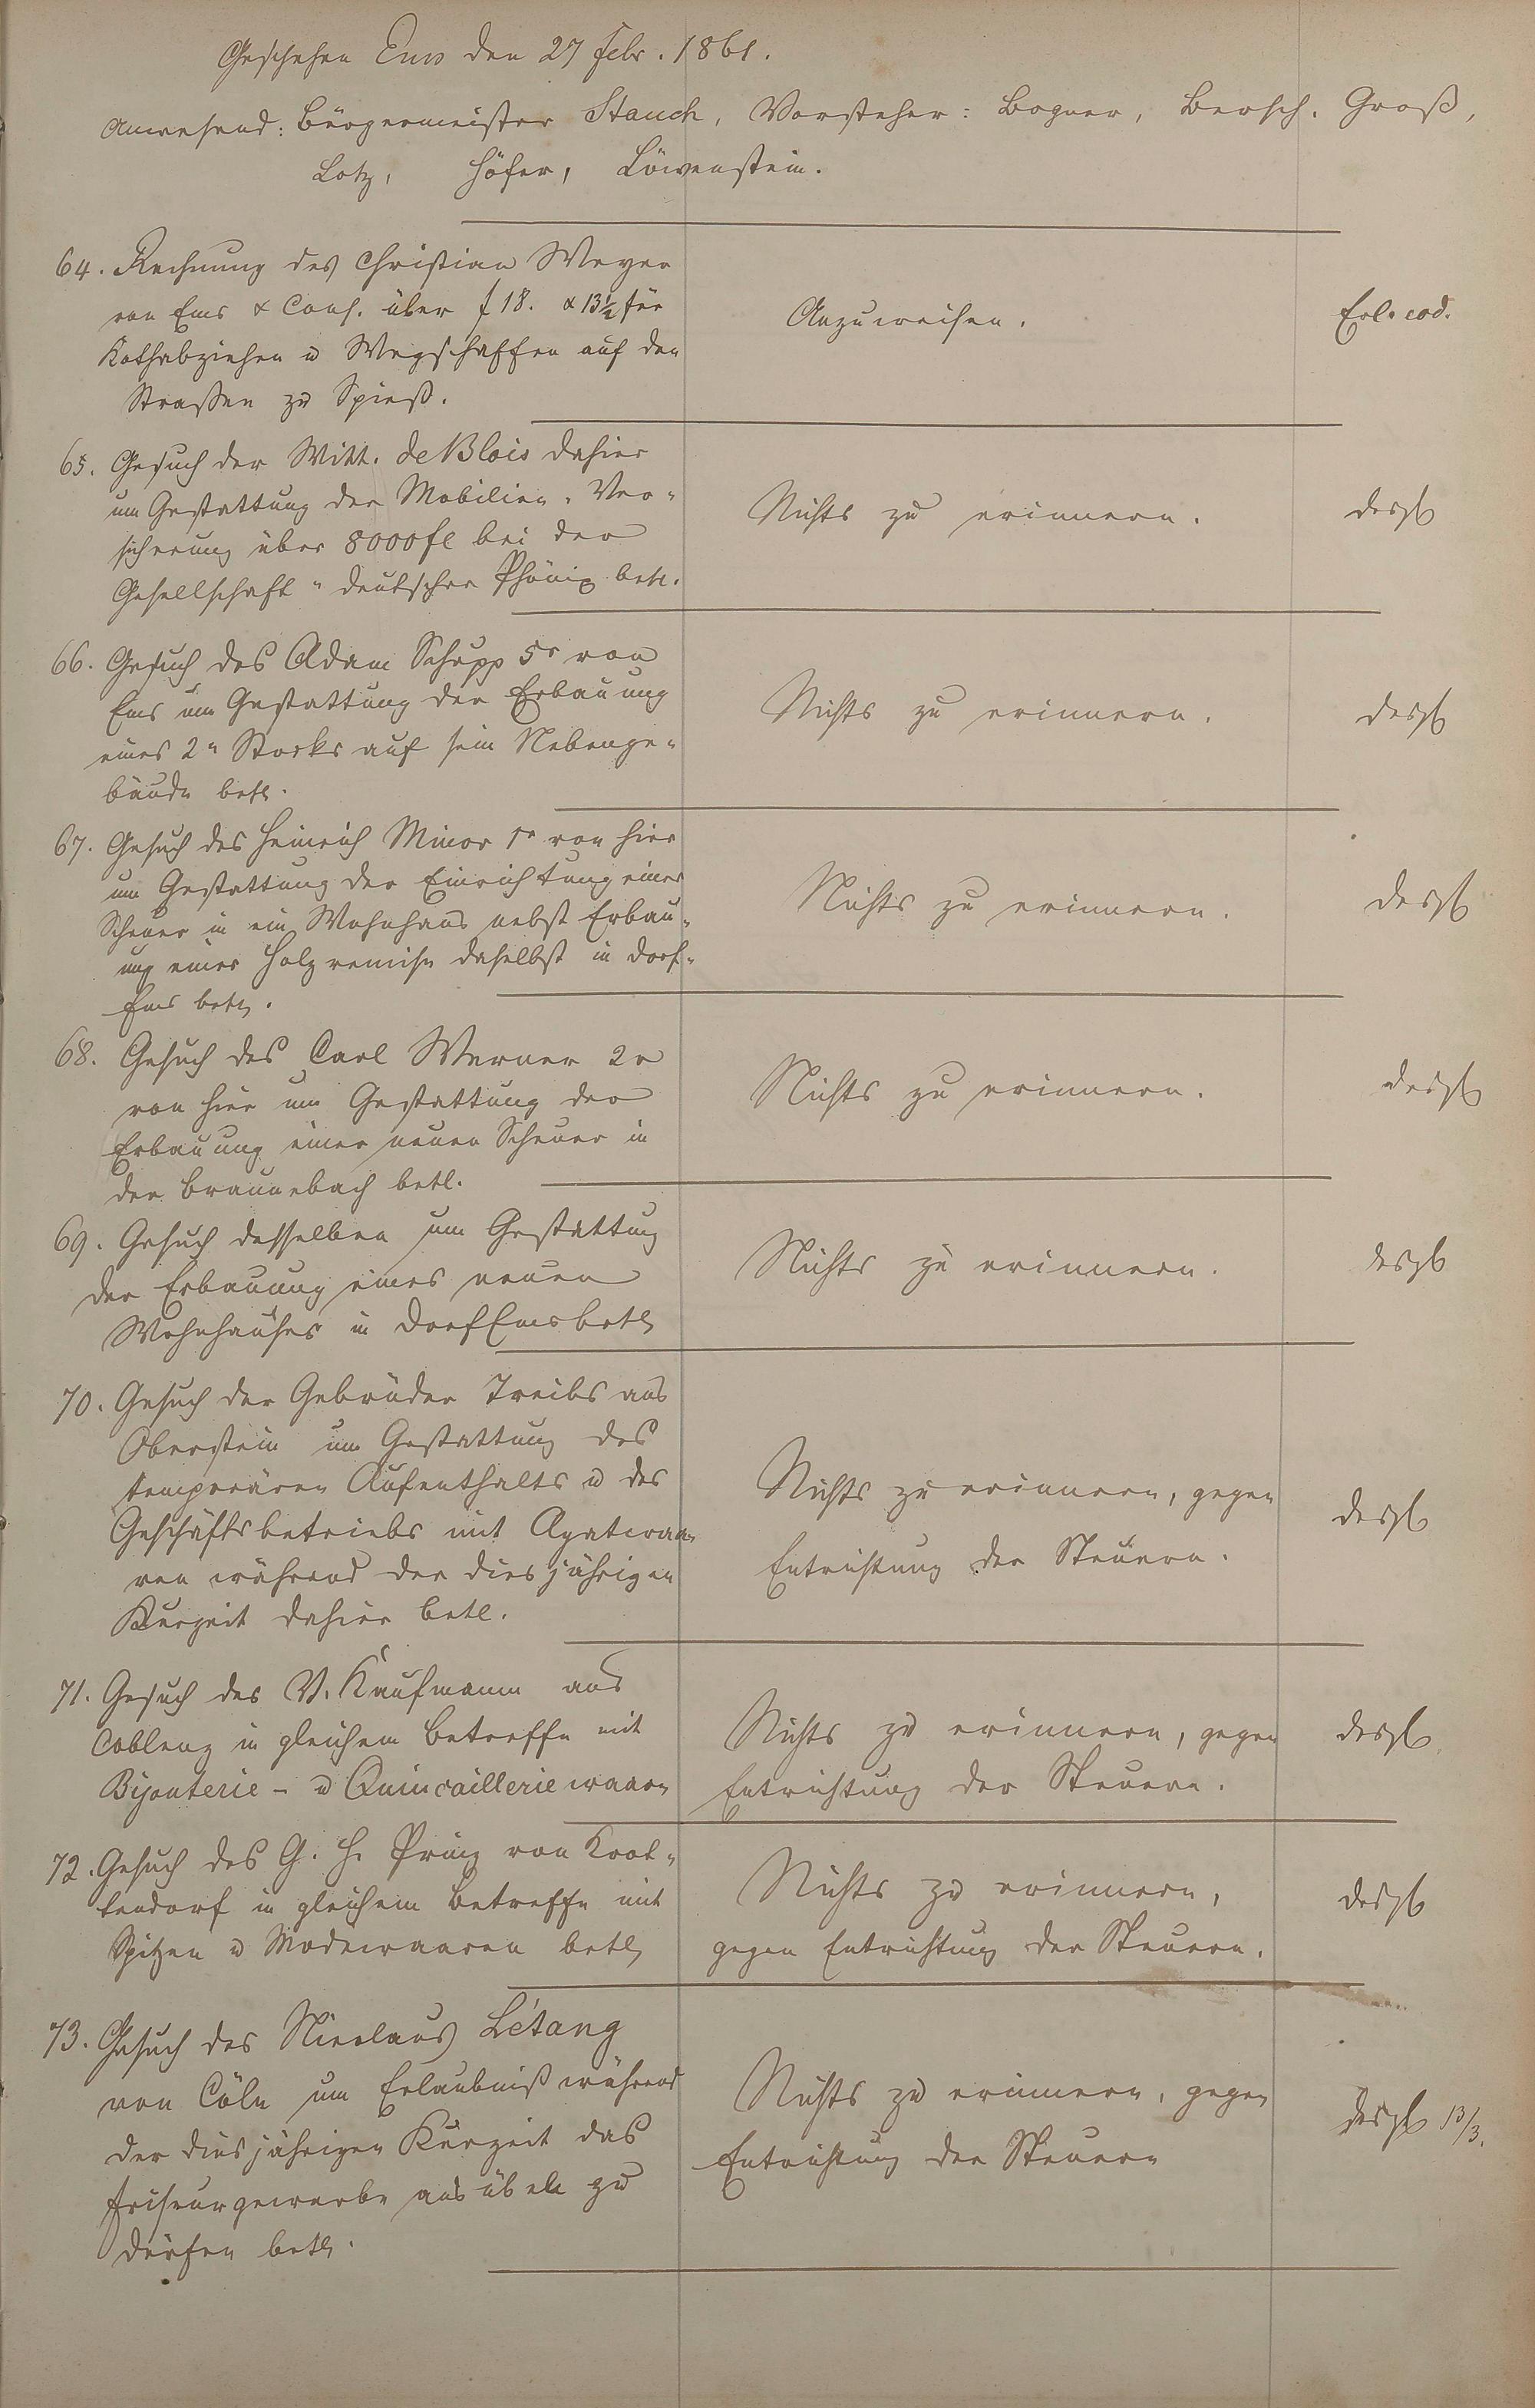 Geschehen Ems den 27 Febr. 1861.
Anwesend: Bürgermeister Stauch, Vorsteher: Bogner, Bersch. Groß,
Lotz, Höfer, Löwenstein.
64. Rechnung des Christian Meyer
von Ems & Cons. über f 18. x 13½ für
Kothabziehen u Wegschaffen auf den
Straßen zu Spieß.
Anzuweisen.
Erl. eod.
65. Gesuch der Witt. de Blois dahier
um Gestattung der Mobilien-Ver-
sicherung über 8000 fl bei der
Gesellschaft "deutscher Phönix betr.
Nichts zu erinnern.
desgl
66. Gesuch des Adam Schupp 5r von
Ems um Gestattung der Erbauung
eines 2n Stocks auf sein Nebenge-
bäude betr.
Nichts zu erinnern.
desgl
67. Gesuch des Heinrich Minor 1r von hier
um Gestattung der Einrichtung einer
Scheuer in ein Wohnhaus nebst Erbau-
ung einer Holzremise daselbst in Dorf-
Ems betr.
Nichts zu erinnern.
desgl
68. Gesuch des Carl Werner 2r
von hier um Gestattung der
Erbauung einer neuen Scheuer in
der Braunebach betr.
Nichts zu erinnern.
desgl
69. Gesuch desselben um Gestattung
der Erbauung eines neuen
Wohnhauses in Dorf Ems betr
Nichts zu erinnern.
desgl
70. Gesuch der Gebrüder Treibs aus
Oberstein um Gestattung des
temporären Aufenthalts u des
Geschäftsbetriebs mit Agatwaa-
ren während der diesjährigen
Kurzeit dahier betr.
Nichts zu erinnern, gegen
Entrichtung der Steuern.
desgl
71. Gesuch des V. Kaufmann aus
Coblenz in gleichem Betreffe mit
Bijouterie- u Quincailleriewaaren
Nichts zu erinnern, gegen
Entrichtung der Steuern.
desgl.
72. Gesuch des G. H. Prinz von
in gleichem Betreffe mit
Spitzen u Modewaaren betr
Nichts zu erinnern,
gegen Entrichtung der Steuern.
desgl
73. Gesuch des Nicolaus Létang
von Cöln um Erlaubniß während
der diesjährigen Kurzeit das
Friseurgewerbe ausüben zu
dürfen betr.
Nichts zu erinnern, gegen
Entrichtung der Steuern
desgl 13/3.